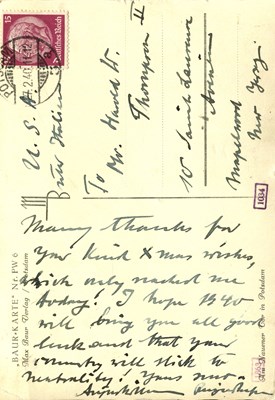 15
Deutsches Reich
2.40
U. S. A.
To Mr. Harold W.
Thompson II
10 Saint Lawrence
Avenue
Maplewood
New Jersey
1034
"BAUR-KARTE" Nr. PW 6
Max Baur Verlag / Potsdam
Tor in Potsdam
Many thanks for
your kind Xmas wishes,
which only reached me
today! I hope 1940
will bring you all good
luck and that your
country will stick to
neutrality! Yours